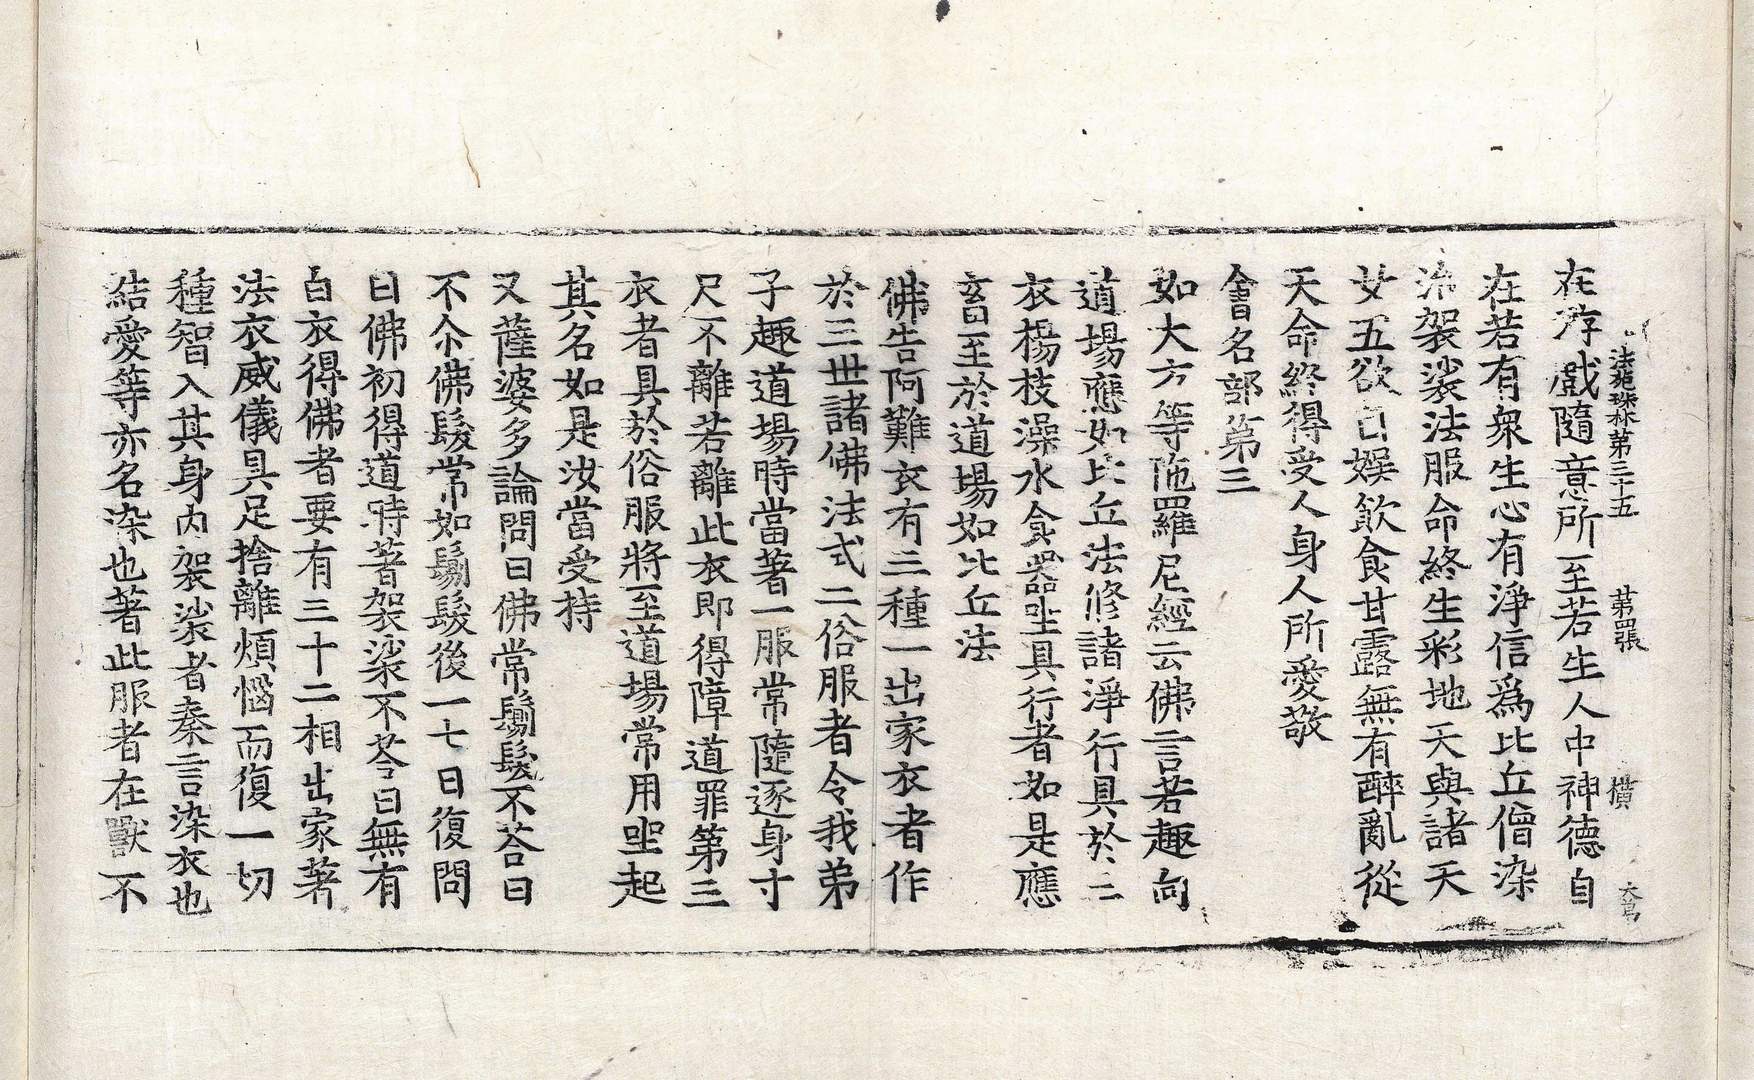 法苑珠林第三十五 第四張 橫
在游戲隨意所至若生人中神德自
在若有衆生心有淨信爲比丘僧染
治袈裟法服命終生彩地天與諸天
女五欲自娛飲食甘露無有醉亂從
天命終得受人身人所愛敬
會名部第三
如大方等陁羅尼經云佛言若趣向
道場應如比丘法修諸淨行具於三
衣楊枝澡水食器坐具行者如是應
畜至於道場如比丘法
佛告阿難衣有三種一出家衣者作
於三世諸佛法式二俗服者令我弟
子趣道場時當著一服常隨逐身寸
尺不離若離此衣即得障道罪第三
衣者具於俗服將至道場常用坐起
其名如是汝當受持
又薩婆多論問曰佛常鬀髮不荅曰
不尒佛髮常如鬀髮後一七日復問
曰佛初得道時著袈裟不荅曰無有
白衣得佛者要有三十二相出家著
法衣威儀具足捨離煩惱而復一切
種智入其身內袈裟者秦言染衣也
結愛等亦名染也著此服者在獸不